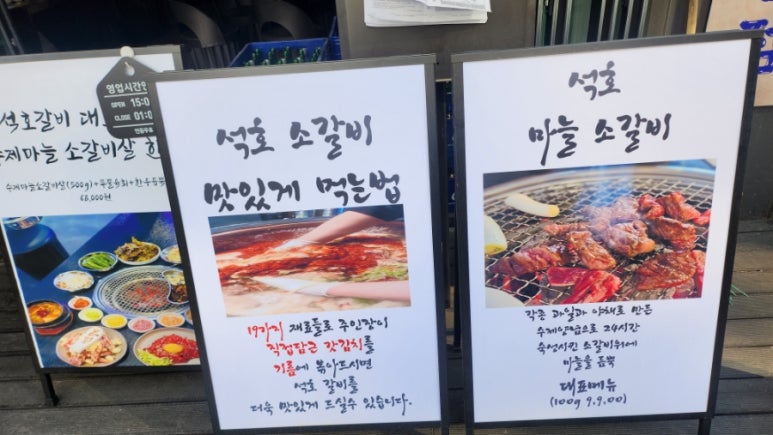 영업시간안
OPEN 15:0
CLOSE 01:0
연중무휴
석호갈비 대
수제마늘 소갈비살 한
수제마늘소갈비살(500g)+
68,000원
석호 소갈비
맛있게 먹는법
19가지 재료들로 주인장이
직접담근 갓김치를
기름에 볶아드시면
석호 갈비를
더욱 맛있게 드실수 있습니다.
석호
마늘 소갈비
각종 과일과 야채로 만든
수제양념으로 24시간
숙성시킨 소갈비위에
마늘을 듬뿍
대표메뉴
(100g 9,900)